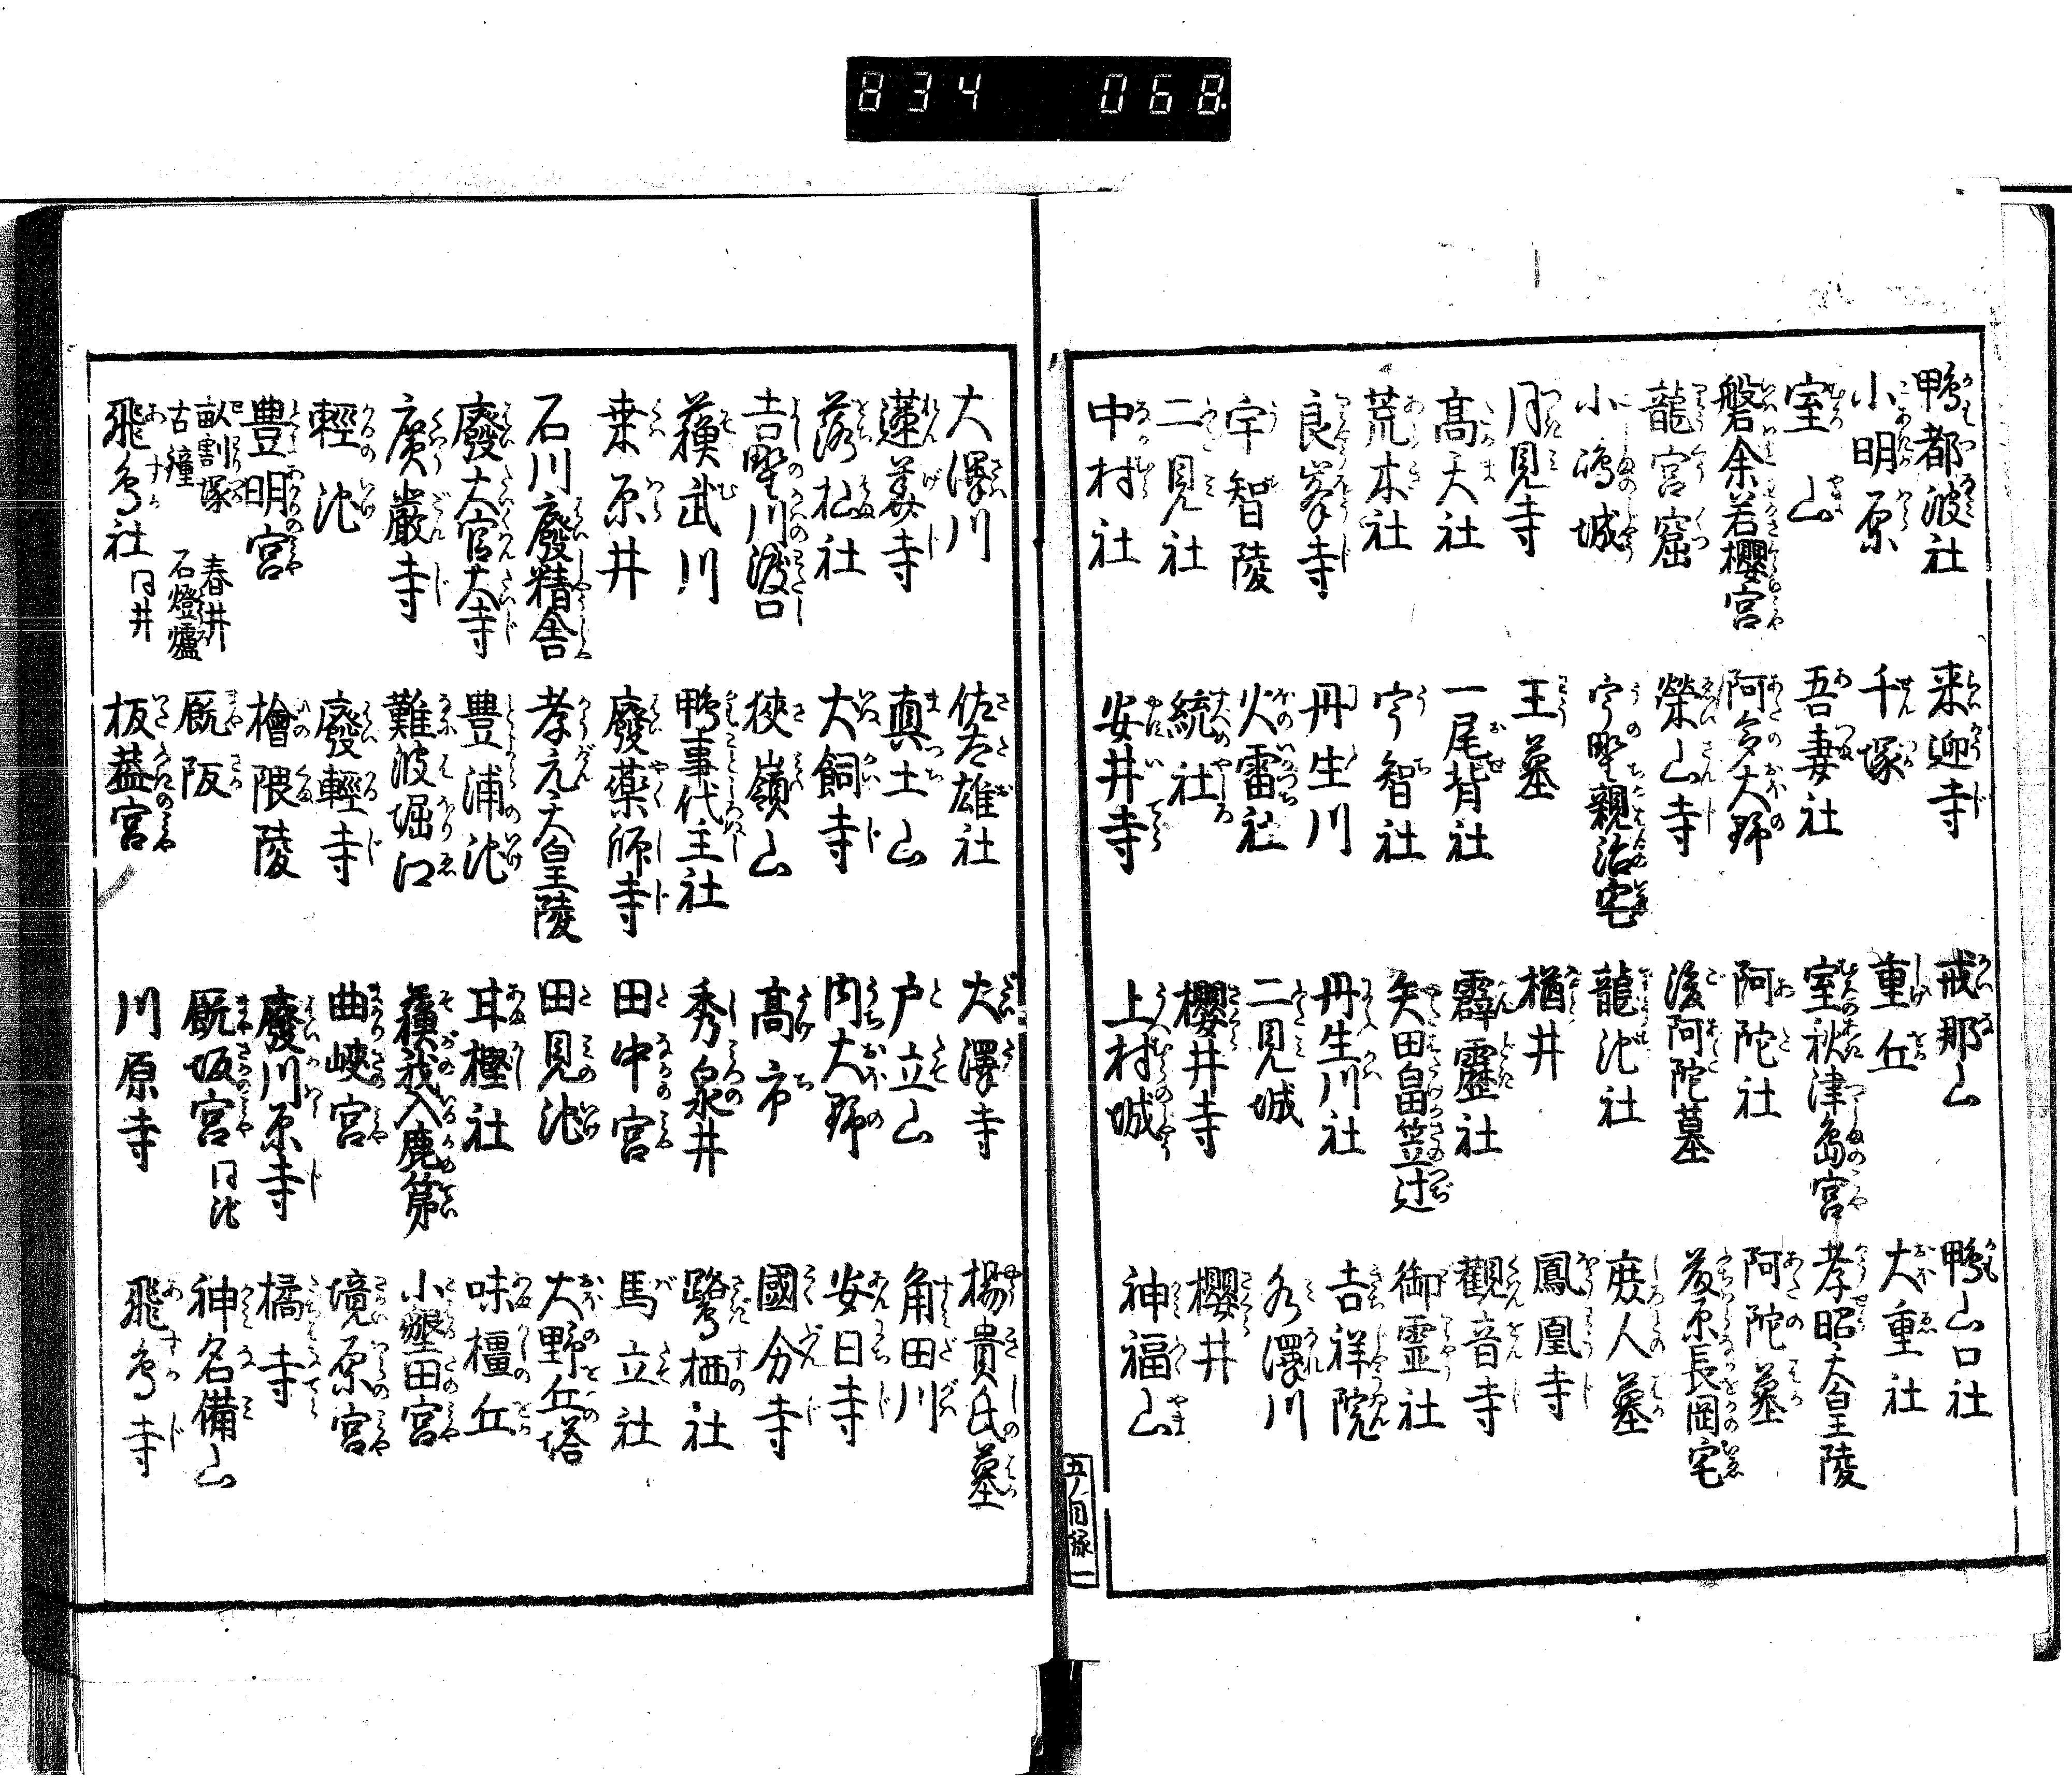 834 068
鴨都波社 来迎寺 戒那山 鴨山口社
小明原 千塚 重丘 大重社
室山 吾妻社 室秋津島宮 孝昭天皇陵
磐余若櫻宮 阿多大野 阿陀社 阿陀墓
龍宮窟 榮山寺 後阿陀墓 藤原長岡宅
小嶋城 宇野親治宅 龍池社 庶人墓
月見寺 王墓 楢井 鳳凰寺
高天社 一尾背社 霹靂社 觀音寺
荒木社 宇智社 矢田畠笠辻 御霊社
良峯寺 丹生川 丹生川社 吉祥院
宇智陵 火雷社 二見城
二見社 統社 櫻井寺 櫻井
中村社 安井寺 上村城 神福山
五ノ目録 一
大澤川 佐太雄社 大澤寺 楊貴氏墓
蓮華寺 真土山 戸立山 角田川
落杣社 犬飼寺 内大野 安日寺
吉野川渡口 狹嶺山 高市 國分寺
蘓武川 鴨事代主社 秀泉井 鷺栖社
桒原井 廢藥師寺 田中宮 馬立社
石川廢精舎 孝元天皇陵 田見池 大野丘塔
廢大官大寺 豊浦池 耳樫社 味橿丘
廣嚴寺 難波堀江 蘓我入鹿第 小墾田宮
輕池 廢輕寺 曲峽宮 境原宮
豊明宮 檜隈陵 廢川原寺 橘寺
畝割塚 春井
古鐘 石燈爐 厩阪 厩坂宮 同池 神名備山
飛鳥社 同井 板葢宮 川原寺 飛鳥寺